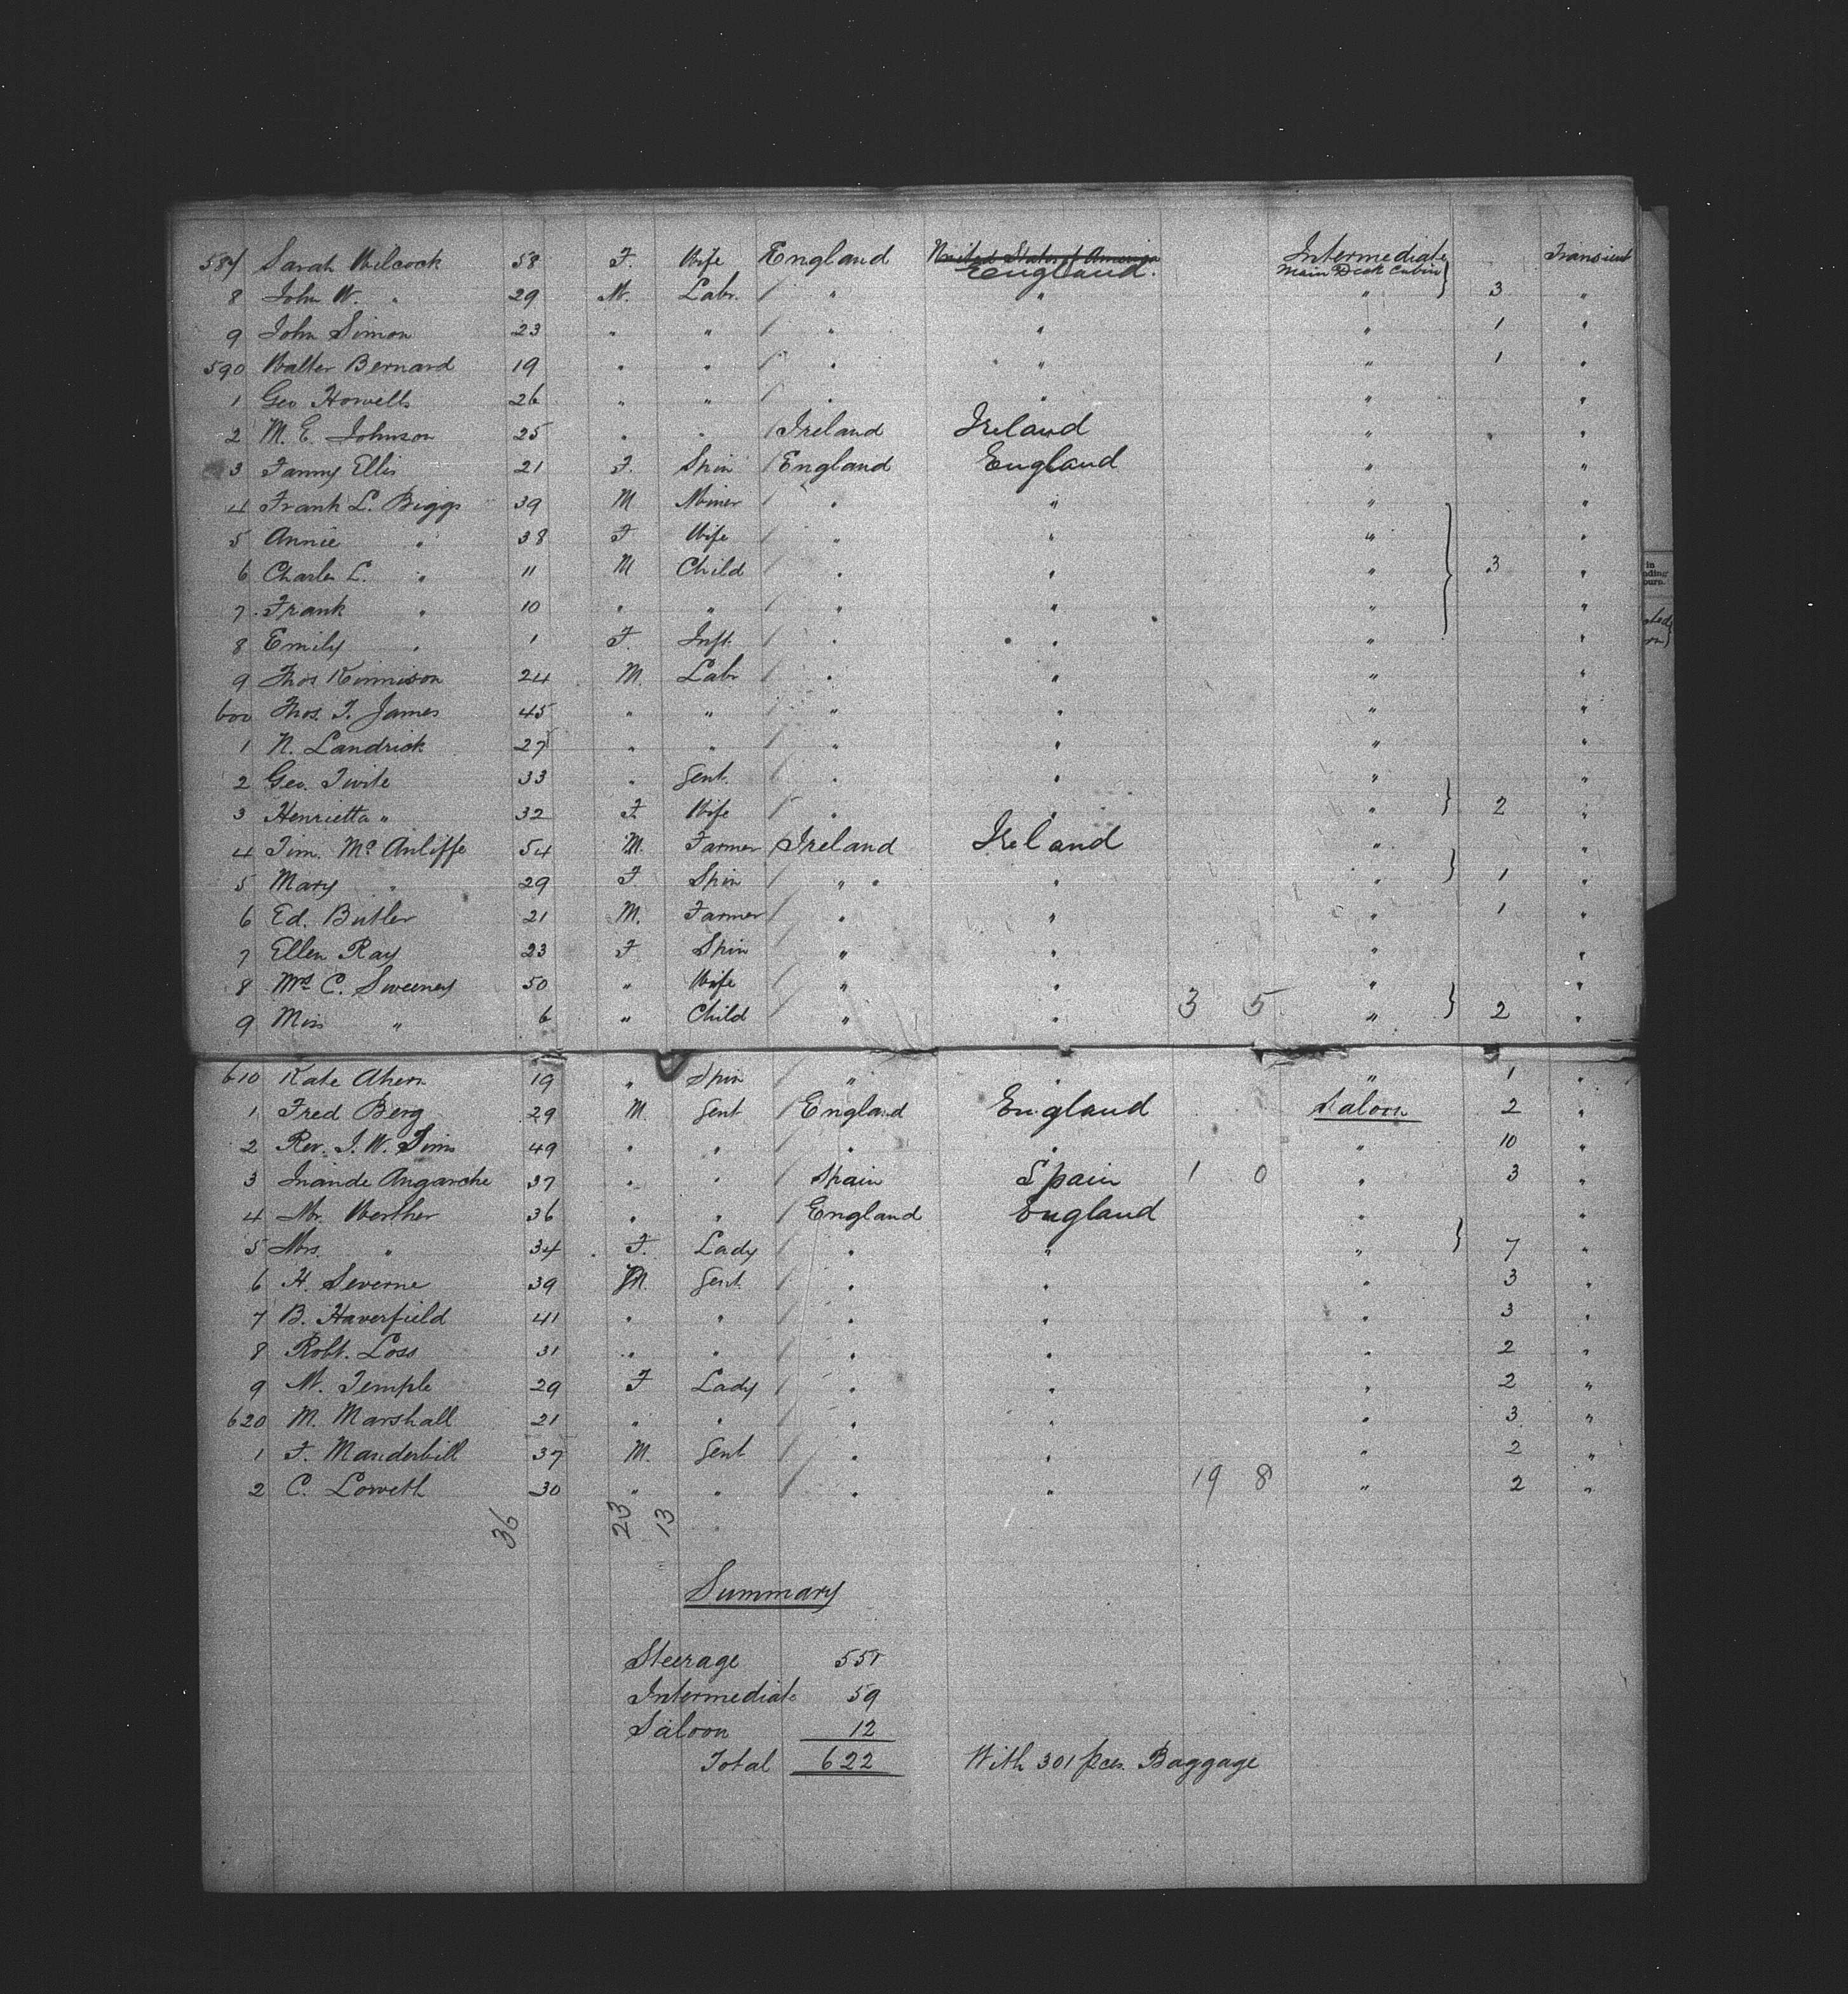 587 Sarah Wilcock 58 F. Wife England United States of America England. Intermediate Main Deck Cabin } Transient
8 John W. " 29 M. Labr. / " " " 3 "
9 John Simon 23 " " / " " " 1 "
590 Walter Bernard 19 " " / " " " 1 "
1 Geo Howells 26 " " / " " " "
2 M. E. Johnson 25 " " / Ireland Ireland " " "
3 Fanny Ellis 21 F. Spin / England England " "
4 Frank L. Biggs 39 M Miner / " " " "
5 Annie " 38 F Wife / " " " "
6 Charles L. " 11 M Child / " " " } 3 "
7 Frank " 10 " " / " " " "
8 Emily " 1 F. Inft. / " " " "
9 Thos Kinnison 24 M. Labr / " " " "
600 Thos. T. James 45 " " / " " " "
1 N. Landrick 27 " " / " " " "
2 Geo. Twite 33 " Gent. / " " " "
3 Henrietta " 32 F. Wife / " " " } 2 "
4 Tim. Mc Auliffe 54 M. Farmer / Ireland Ireland " "
5 Mary " 29 F. Spin / " " " } 1 "
6 Ed. Butler 21 M. Farmer / " " " 1 "
7 Ellen Ray 23 F Spin / " " " "
8 Mrs C. Sweeney 50 " Wife / " " " "
9 Miss " 6 " Child / " " 3 5 " } 2 "
610 Kate Ahern 19 " Spin / " " " 1 "
1 Fred Berg 29 M. Gent / England England Saloon 2 "
2 Rev. J. W. Tims 49 " " / " " " 10 "
3 37 " " / Spain Spain 1 0 " 3 "
4 Mr. Werther 36 " " / England England " "
5 Mrs. " 34 F. Lady / " " " } 7 "
6 H. Severne 39 M. Gent. / " " " 3 "
7 B. Haverfield 41 " " / " " " 3 "
8 Robt. Loss 31 " " / " " " 2 "
9 M. Temple 29 F Lady / " " " 2 "
620 M. Marshall 21 " " / " " " 3 "
1 F. Manderbill 37 M. Gent / " " " 2 "
2 C. Loweth 30 " " / " " 19 8 " 2 "
36 23 13
Summary
Steerage 551
Intermediate 59
Saloon 12
Total 622 With 301 pces. Baggage
in
nding
ourn.